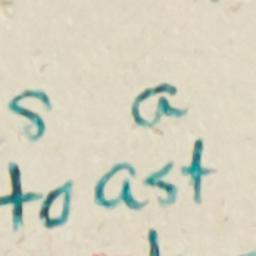 s a
toast